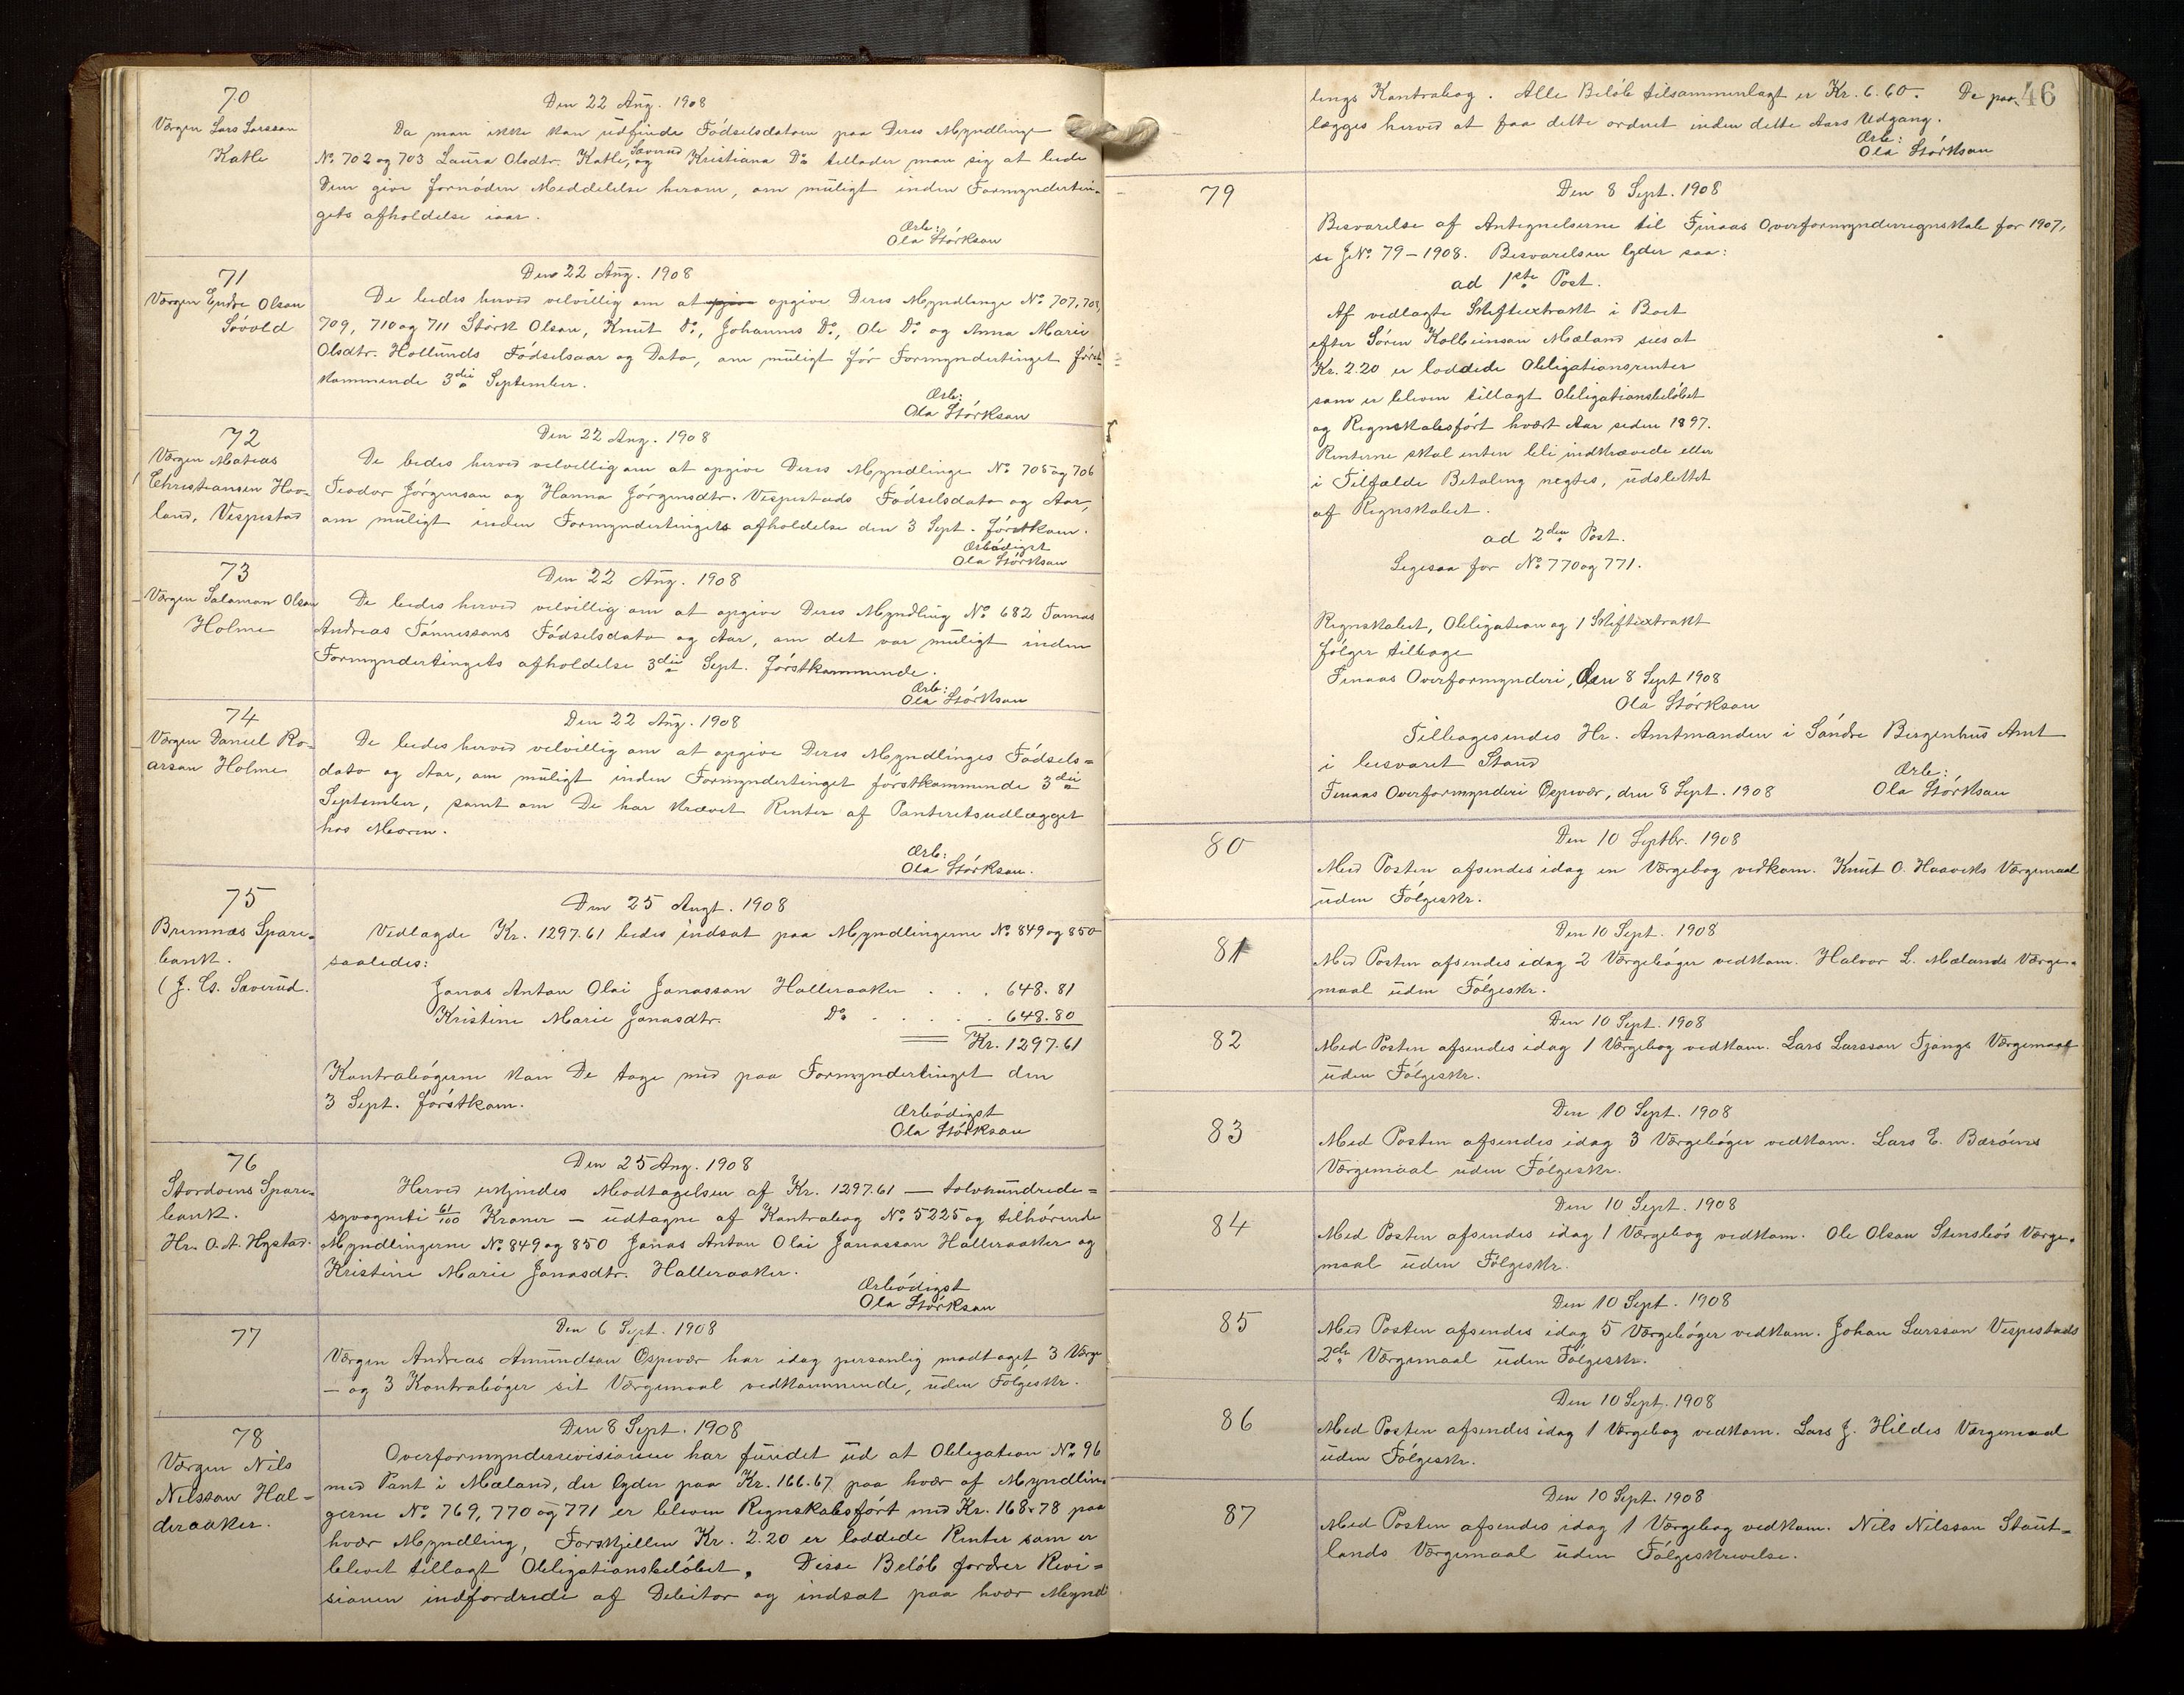 70
Værgen Lars Larsson
Katle
Den 22 Aug. 1908
Da man ikke kan udfinde Fødselsdatoen paa Deres Myndlinge
No. 702 og 703 Laura Olsdtr. Katle, og Sæverud Kristiana Do. tillader man sig at bede
Dem give fornøden Meddelelse herom, om muligt inden Formyndertin-
gets afholdelse iaar.
Ærb:
Ola Størkson
71
Værgen Endre Olson
Søvold
Den 22 Aug. 1908
De bedes herved velvillig om at opgive opgive Deres Myndlinge No. 707, 708,
709, 710 og 711 Størk Olson, Knut Do., Johannes Do., Ole Do. og Anna Marie
Olsdtr. Hollunds Fødselsaar og Dato, om muligt før Formyndertinget først-
kommende 3die September.
Ærb:
Ola Størkson
72
Værgen Matias
Christiansen Hov-
land, Vespestad
Den 22 Aug. 1908
De bedes herved velvillig om at opgive Deres Myndlinge No. 705 og 706
Teodor Jørgenson og Hanna Jørgensdtr. Vespestads Fødselsdato og Aar,
om muligt inden Formyndertingets afholdelse den 3 Sept. førstkom.
Ærbødigst
Ola Størkson
73
Værgen Salamon Olson
Holme
Den 22 Aug. 1908
De bedes herved velvillig om at opgive Deres Myndling No. 682 Tomas
Andreas Tønnessons Fødselsdato og Aar, om det var muligt inden
Formyndertingets afholdelse 3die Sept. førstkommende.
Ærb:
Ola Størkson
74
Værgen Daniel Ro-
arson Holme
Den 22 Aug. 1908
De bedes herved velvillig om at opgive Deres Myndlinges Fødsels=
dato og Aar, om muligt inden Formyndertinget førstkommende 3die
September, samt om De har krævet Renter af Panteretsudlægget
hos Moren.
Ærb:
Ola Størkson.
75
Bremnæs Spare-
bank.
(J. Cs. Sæverud.
Den 25 Augt. 1908
Vedlagde Kr. 1297.61 bedes indsat paa Myndlingerne No. 849 og 850
saaledes:
Jonas Anton Olai Jonasson Halleraaker . . . 648.81
Kristine Marie Jonasdtr. Do. . . . . . 648.80
Kr. 1297.61
Kontrabøgerne kan De tage med paa Formyndertinget den
3 Sept. førstkom.
Ærbødigst
Ola Størkson
76
Stordøens Spare-
bank.
Hr. O. A. Hystad.
Den 25 Aug. 1908
Herved erkjendes Modtagelsen af Kr. 1297.61 — tolvhundrede=
syvogneti 61/100 Kroner — udtagne af Kontrabog No. 5225 og tilhørende
Myndlingerne No. 849 og 850 Jonas Anton Olai Jonasson Halleraaker og
Kristine Marie Jonasdtr. Halleraaker.
Ærbødigst
Ola Størkson
77
Den 6 Sept. 1908
Værgen Andreas Amundson Espevær har idag personlig modtaget 3 Værge
— og 3 Kontrabøger sit Værgemaal vedkommende, uden Følgeskr.
78
Værgen Nils
Nilsson Hal-
deraaker.
Den 8 Sept. 1908
Overformynderrevisionen har fundet ud at Obligation No. 96
med Pant i Mæland, der lyder paa Kr. 166.67 paa hver af Myndlin-
gerne No. 769, 770 og 771 er bleven Regnskabsført med Kr. 168.78 paa
hver Myndling, Forskjellen Kr. 2.20 er loddede Renter som er
blevet tillagt Obligationsbeløbet. Disse Beløb fordrer Revi=
sionen indfordrede af Debitor og indsat paa hver Mynd
46
lings Kontrabog. Alle Beløb tilsammenlagt er Kr. 6.60. De paa-
lægges herved at faa dette ordnet inden dette Aars Udgang.
Ærb:
Ola Størkson
79
Den 8 Sept. 1908
Besvarelse af Antegnelserne til Finaas Overformynderregnskab for 1907,
se J.No. 79 – 1908. Besvarelsen lyder saa:
ad 1ste Post.
Af vedlagte Skifteextrakt i Boet
efter Søren Kolbeinson Mæland sees at
Kr. 2.20 er loddede Obligationsrenter
som er bleven tillagt Obligationsbeløbet
og Regnskabsført hvert Aar siden 1897.
Renterne skal enten bli indkrævede eller
i Tilfælde Betaling negtes, udslettet
af Regnskabet.
ad 2den Post.
Ligesaa for No. 770 og 771.
Regnskabet, Obligation og 1 Skifteextrakt
følger tilbage
Finaas Overformynderi, den 8 Sept 1908
Ola Størkson
Tilbagesendes Hr. Amtmanden i Søndre Bergenhus Amt
i besvaret Stand
Finaas Overformynderi Espevær, den 8 Sept. 1908
Ærb:
Ola Størkson
80
Den 10 Septbr. 1908
Med Posten afsendes idag en Værgebog vedkom. Knut O. Haaviks Værgemaal
uden Følgeskr.
81
Den 10 Sept. 1908
Med Posten afsendes idag 2 Værgebøger vedkom. Halvor L. Mælands Værge-
maal uden Følgeskr.
82
Den 10 Sept. 1908
Med Posten afsendes idag 1 Værgebog vedkom. Lars Larsson Tjongs Værgemaal
uden Følgeskr.
83
Den 10 Sept. 1908
Med Posten afsendes idag 3 Værgebøger vedkom. Lars E. Barøens
Værgemaal uden Følgeskr.
84
Den 10 Sept. 1908
Med Posten afsendes idag 1 Værgebog vedkom. Ole Olson Stensbøs Værge-
maal uden Følgeskr.
85
Den 10 Sept. 1908
Med Posten afsendes idag 5 Værgebøger vedkom. Johan Larsson Vespestads
2de Værgemaal uden Følgeskr.
86
Den 10 Sept. 1908
Med Posten afsendes idag 1 Værgebog vedkom. Lars J. Hildes Værgemaal
uden Følgeskr.
87
Den 10 Sept. 1908
Med Posten afsendes idag 1 Værgebog vedkom. Nils Nilsson Staut-
lands Værgemaal uden Følgeskrivelse.